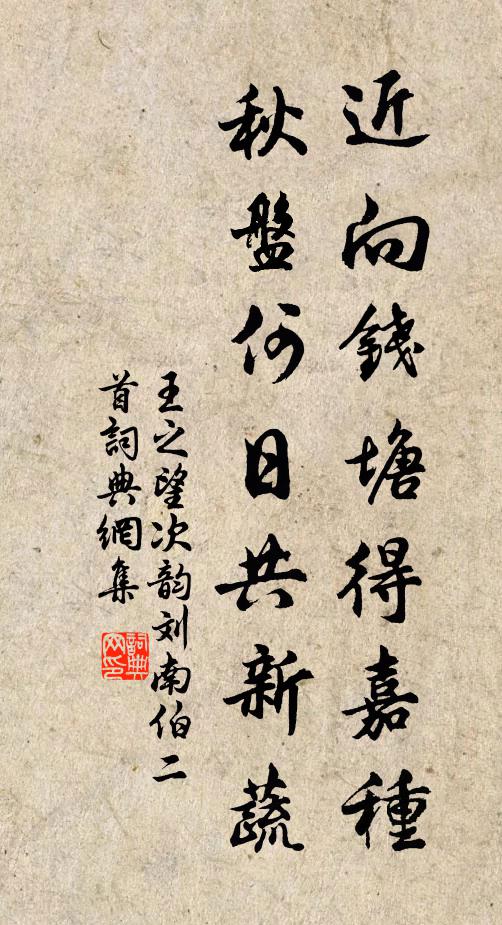 近向錢塘得嘉種
秋盤何日共新蔬
王之望次韵刘南伯二
首詞典網集
詞典网印